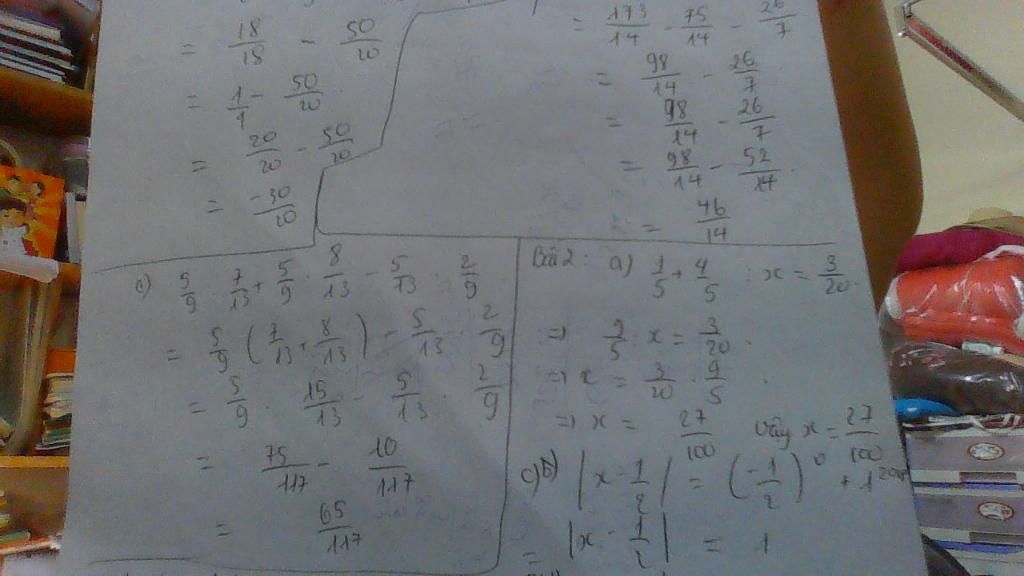 = 18/18 - 50/20
= 1/1 - 50/20
= 20/20 - 50/20
= -30/20
= 173/14 - 75/14 - 26/7
= 98/14 - 26/7
= 98/14 - 26/7
= 98/14 - 52/14
= 46/14
c) 5/9 . 7/13 + 5/9 . 8/13 - 5/13 . 2/9
= 5/9 (7/13 + 8/13) - 5/13 . 2/9
= 5/9 . 15/13 - 5/13 . 2/9
= 75/117 - 10/117
= 65/117
Bài 2: a) 1/5 + 4/5 : x = 3/20
=> 9/5 : x = 3/20
=> x = 3/20 . 9/5
=> x = 27/100 Vậy x = 27/100
c) b) |x - 1/2| = (-1/2)^0
= |x - 1/2| = 1